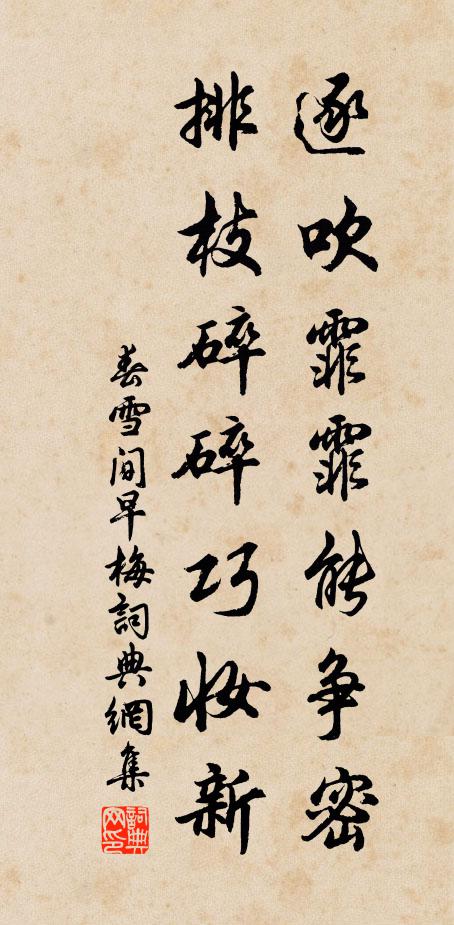 逐吹霏霏能争密
排枝碎碎巧妆新
春雪间早梅詞典網集
詞典网印